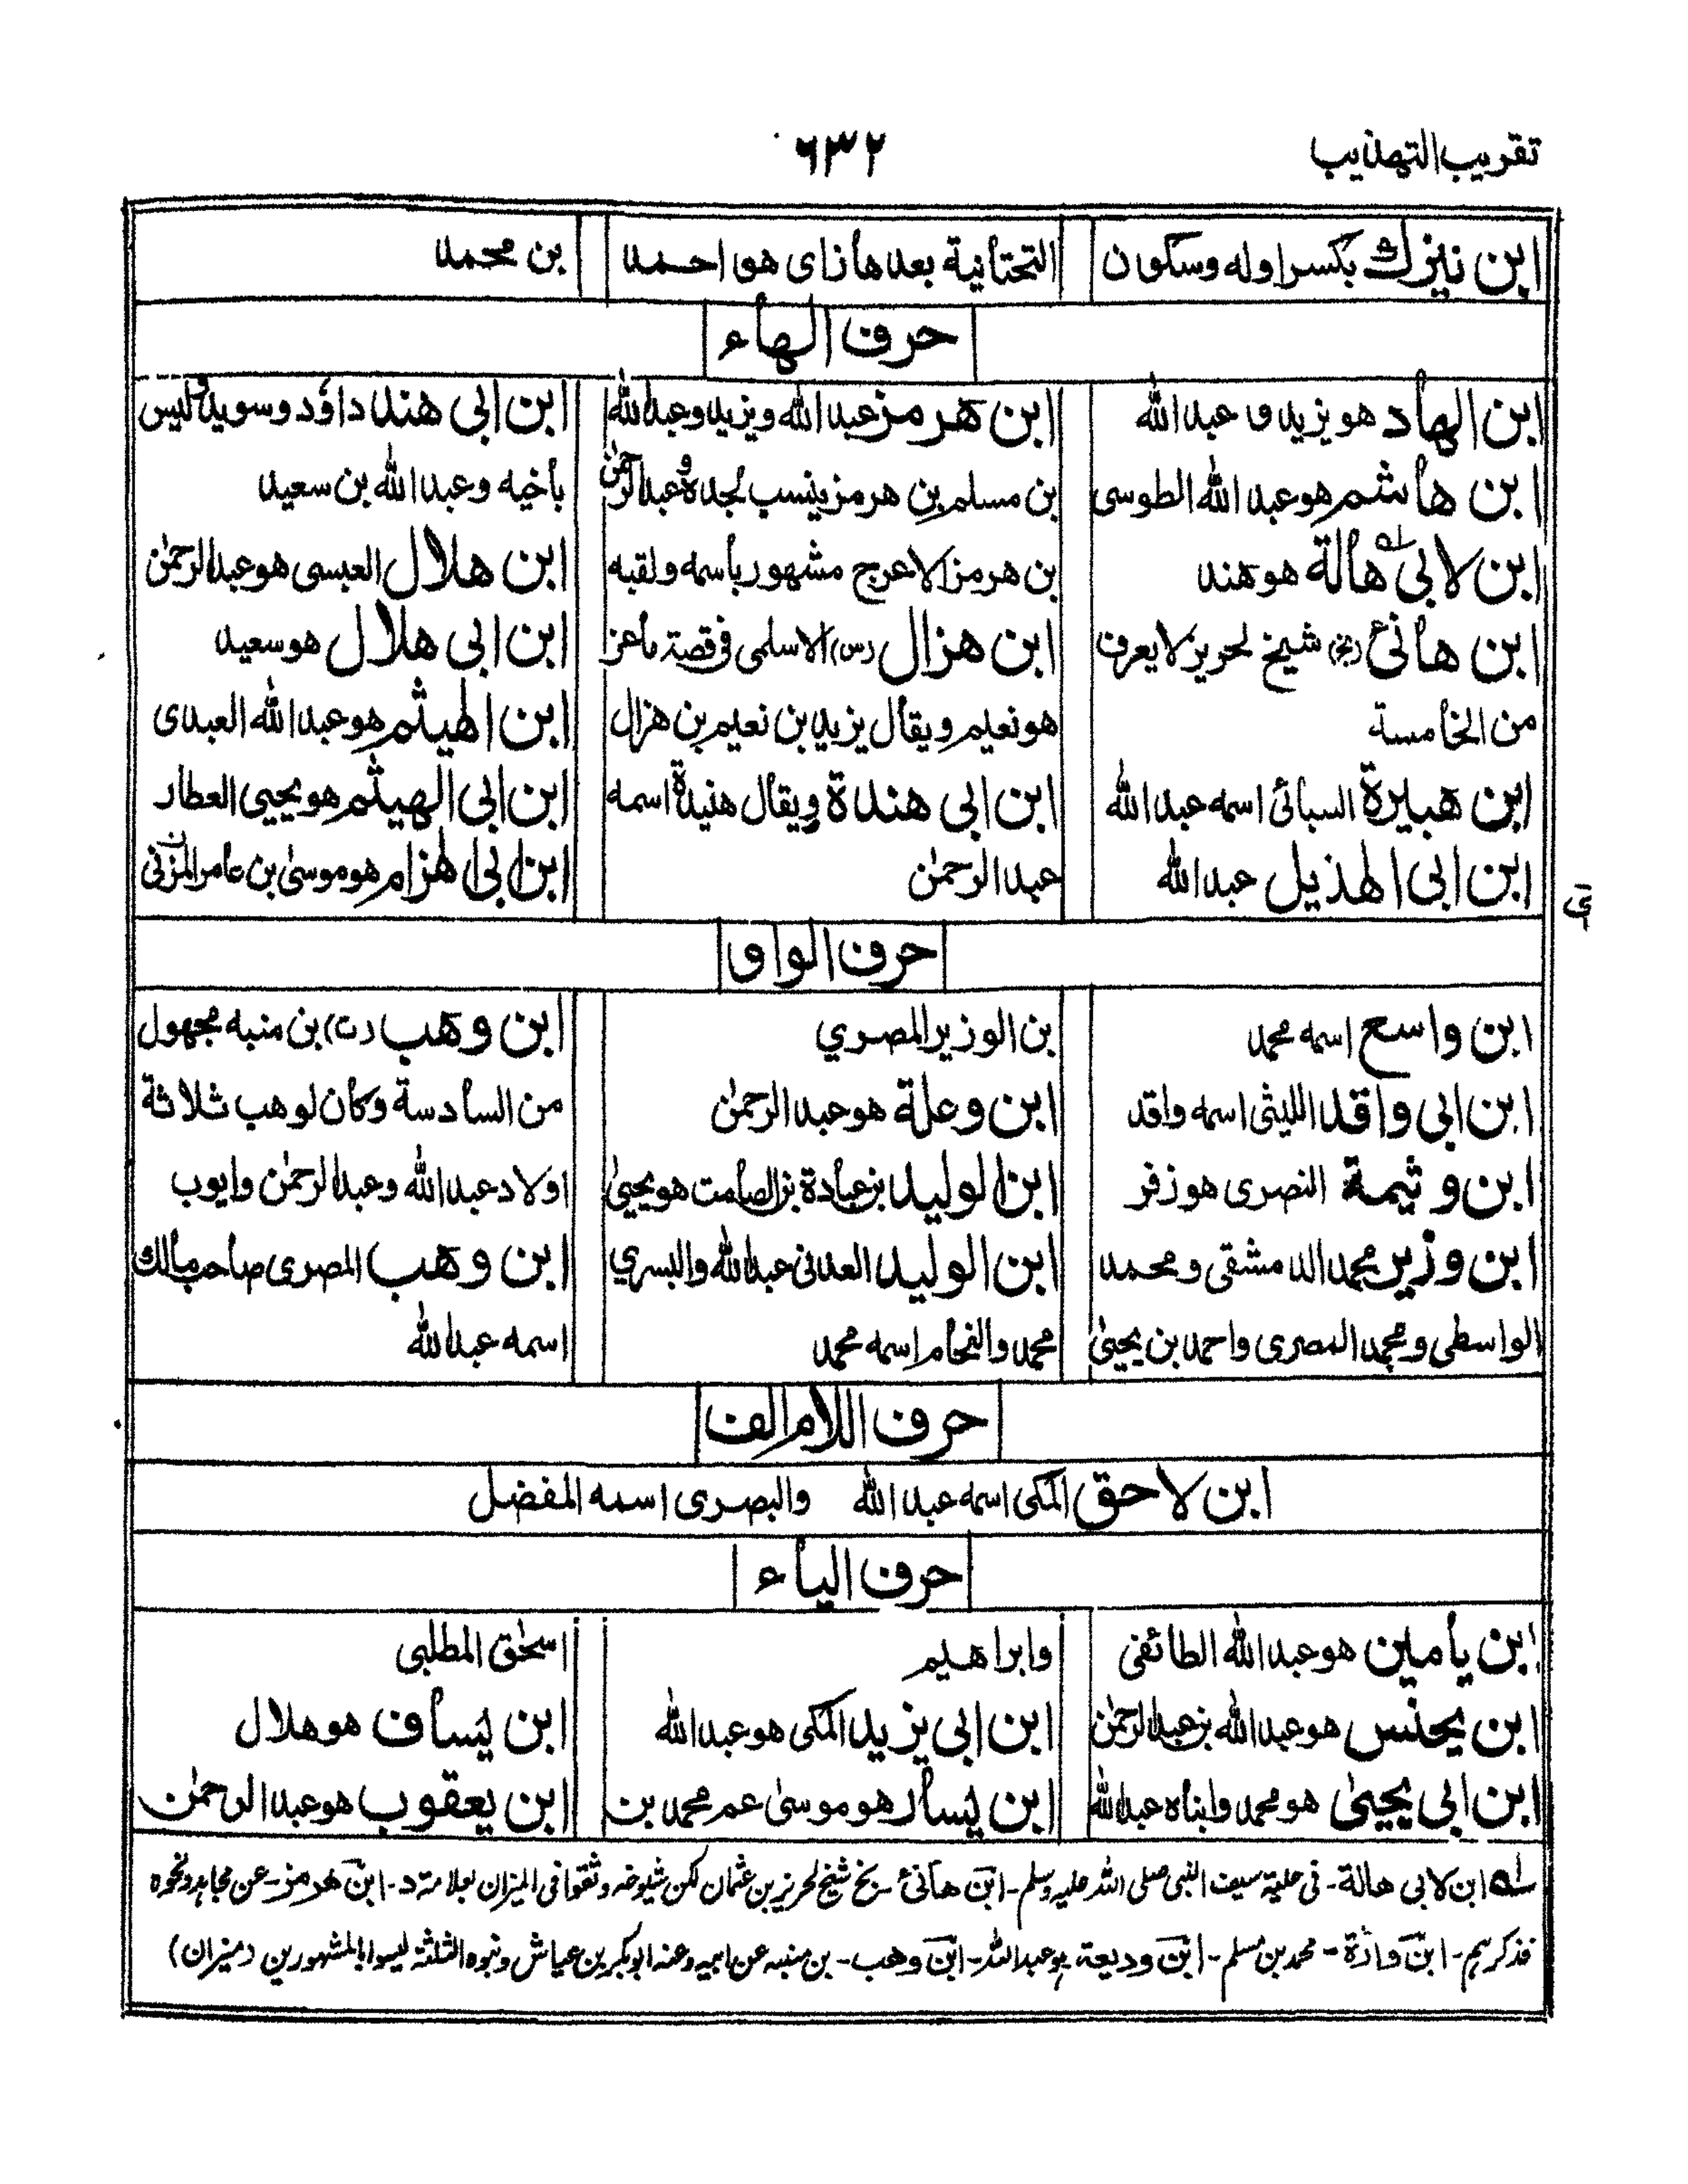 تقريب التهذيب
٦٣٢
ابن نيزك بكسر اوله وسكون
التحتانية بعدها زاى هو احمد
بن محمد
حرف الهاء
ابن الهاد هو يزيد و عبد الله
ابن هاشم هو عبد الله الطوسى
ابن لابى هالة هو هند
ابن هانئ (بخ) شيخ لحريز لا يعرف
من الخامسة
ابن هبيرة السبائى اسمه عبد الله
ابن ابى الهذيل عبد الله
ابن هرمز عبد الله ويزيد وعبد الله
بن مسلم بن هرمز ينسب لجده وعبد الرحمٰن
بن هرمز الاعرج مشهور باسمه ولقبه
ابن هزال (س) الاسلمى فى قصة ماعز
هو نعيم ويقال يزيد بن نعيم بن هزال
ابن ابى هندة ويقال هنيدة اسمه
عبد الرحمٰن
ابن ابى هند داؤد وسويد وليس
باخيه وعبد الله بن سعيد
ابن هلال العبسى هو عبد الرحمٰن
ابن ابى هلال هو سعيد
ابن الهيثم هو عبد الله العبدى
ابن ابى الهيثم هو يحيى العطار
ابن ابى الهزام هو موسىٰ بن عامر المزنى
حرف الواو
ابن واسع اسمه محمد
ابن ابى واقد الليثى اسمه واقد
ابن وثيمة النصرى هو زفر
ابن وزير محمد الدمشقى ومحمد
الواسطى ومحمد المصرى واحمد بن يحيىٰ
بن الوزير المصري
ابن وعلة هو عبد الرحمٰن
ابن الوليد بن عبادة بن الصامت هو يحيىٰ
ابن الوليد العدنى عبد الله والبسري
محمد والفحام اسمه محمد
ابن وهب (ت) بن منبه مجهول
من السادسة وكان لوهب ثلاثة
اولاد عبد الله وعبد الرحمٰن وايوب
ابن وهب المصرى صاحب مالك
اسمه عبد الله
حرف اللام الف
ابن لاحق المكى اسمه عبد الله والبصرى اسمه المفضل
حرف الياء
ابن يامين هو عبد الله الطائفى
ابن يحنس هو عبد الله بن عبد الرحمٰن
ابن ابى يحيىٰ هو محمد وابناه عبد الله
وابراهيم
ابن ابى يزيد المكى هو عبد الله
ابن يسار هو موسىٰ عم محمد بن
اسحٰق المطلبى
ابن يساف هو هلال
ابن يعقوب هو عبد الرحمٰن
له ابن لابى هالة - فى حلية سيف النبى صلى الله عليه وسلم - ابن هانئ - بخ شيخ لحريز بن عثمان لكن شيوخه وثقوا فى الميزان بعلامة د - ابن هرمز - عن مجاهد ونحوه
فذكرهم - ابن وارة - محمد بن مسلم - ابن وديعة هو عبد الله - ابن وهب - بن منبه عن ابيه وعنه ابوبكر بن عياش وبنوه الثلثة ليسوا بالمشهورين (ميزان)